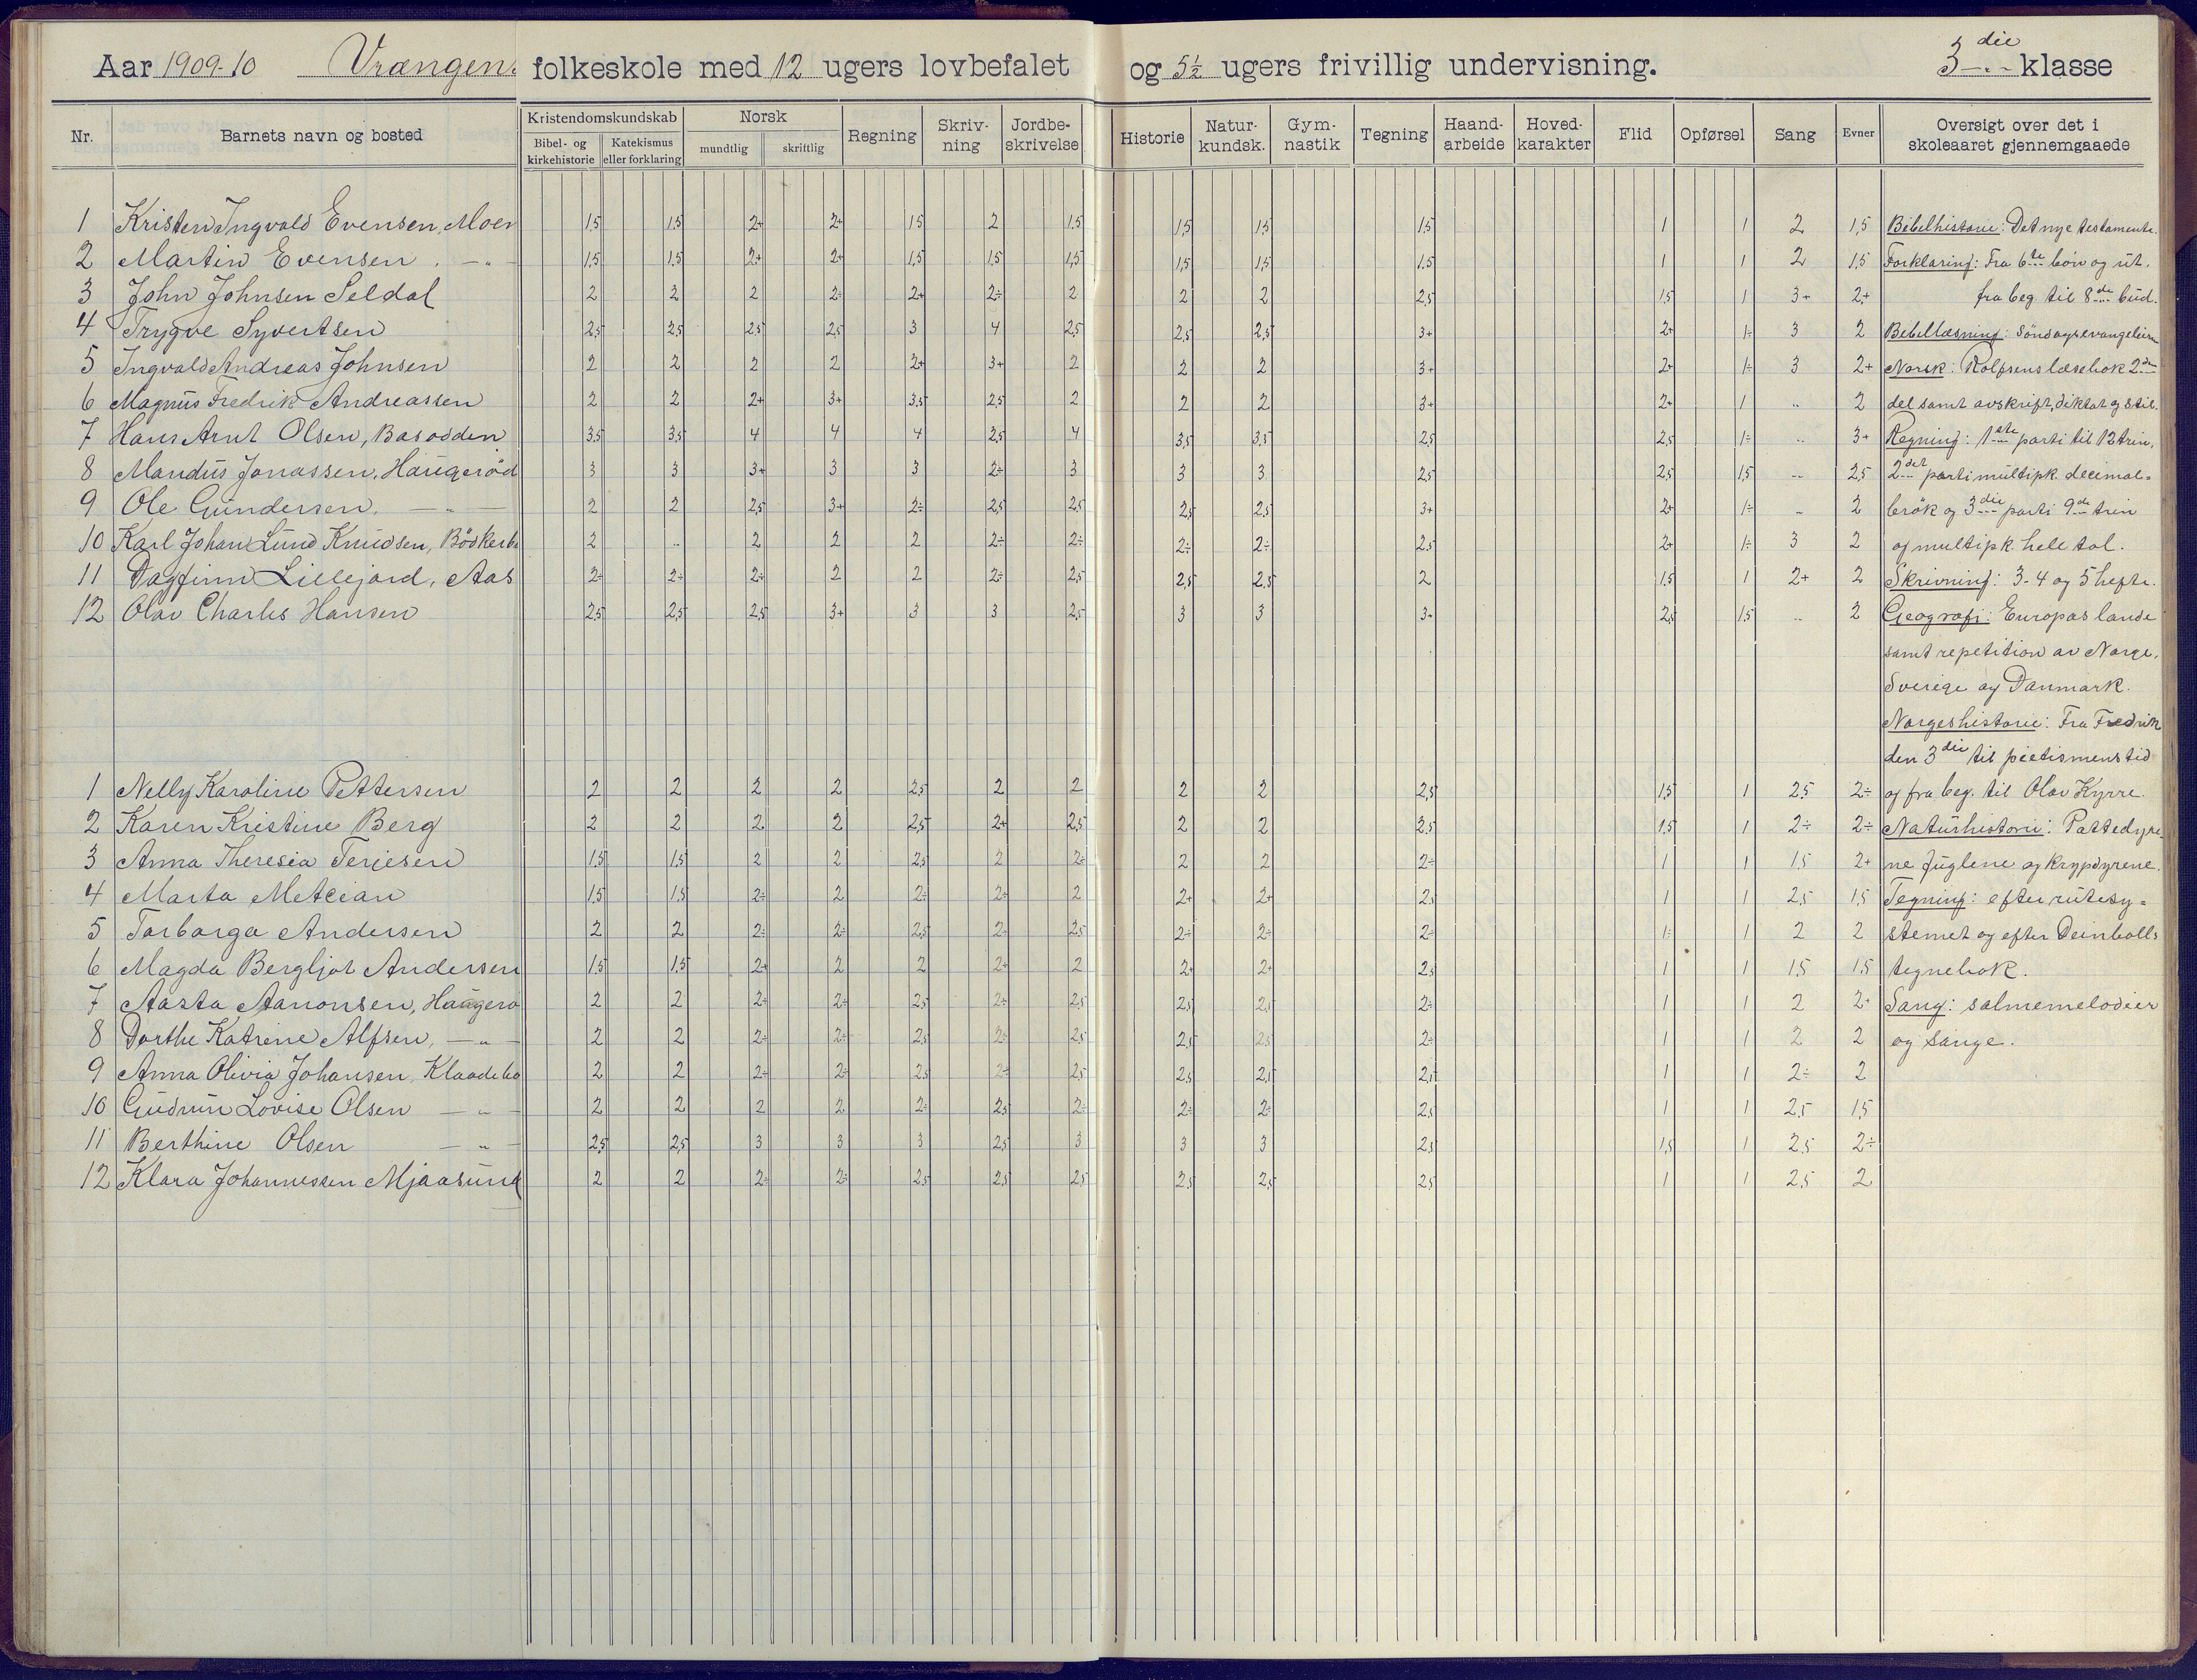 Aar 1909-10 Vrængens folkeskole med 12 ugers lovbefalet og 5½ ugers frivillig undervisning. 3die klasse
Nr. Barnets navn og bosted Kristendomskundskab Bibel- og kirkehistorie Katekismus eller forklaring Norsk mundtlig skriftlig Regning Skriv-ning Jordbe-skrivelse Historie Natur-kundsk. Gym-nastik Tegning Haand-arbeide Hoved-karakter Flid Opførsel Sang Evner Oversigt over det i skoleaaret gjennemgaaede
1 Kristen Ingvald Evensen, Moen 1,5 1,5 2+ 2+ 1,5 2 1,5 1,5 1,5 1,5 1 1 2 1,5 Bibelhistorie: Det nye testamente.
2 Martin Evensen, —„— 1,5 1,5 2+ 2+ 1,5 1,5 1,5 1,5 1,5 1,5 1 1 2 1,5 Forklaring: Fra 6te bön og ut,
3 John Johnsen Seldal 2 2 2 2÷ 2+ 2÷ 2 2 2 2,5 1,5 1 3+ 2+ fra beg. til 8de bud.
4 Trygve Syvertsen 2,5 2,5 2,5 2,5 3 4 2,5 2,5 2,5 3+ 2+ 1÷ 3 2 Bibellæsning: Söndagsevangelierne
5 Ingvald Andreas Johnsen 2 2 2 2 2+ 3+ 2 2 2 3+ 2+ 1÷ 3 2+ Norsk: Rolfsens læsebok 2den
6 Magnus Fredrik Andreassen 2 2 2+ 3+ 3,5 2,5 2 2 2 3+ 2+ 1 „ 2 del samt avskrift, diktat og stil.
7 Hans Arnt Olsen, Basodden 3,5 3,5 4 4 4 2,5 4 3,5 3,5 2,5 2,5 1÷ „ 3+ Regning: 1ste parti til 12 trin,
8 Mandus Jonassen, Haugeröd 3 3 3+ 3 3 2÷ 3 3 3 2,5 2,5 1,5 „ 2,5 2det parti multipk. decimal=
9 Ole Gundersen, —„— 2 2 2,5 3+ 2÷ 2,5 2,5 2,5 2,5 3+ 2+ 1÷ „ 2 brök og 3die parti 9de trin
10 Karl Johan Lund Knudsen, Bödkerbu 2 „ 2 2 2 2÷ 2÷ 2÷ 2÷ 2,5 2+ 1÷ 3 2 og multipk. hele tal.
11 Dagfinn Lillejord, Aas 2÷ 2÷ 2÷ 2 2 2÷ 2,5 2,5 2,5 2 1,5 1 2+ 2 Skrivning: 3-4 og 5 hefte.
12 Olav Charles Hansen 2,5 2,5 2,5 3+ 3 3 2,5 3 3 3+ 2,5 1,5 „ 2 Geografi: Europas lande
samt repetition av Norge,
Sverige og Danmark.
Norgeshistorie: Fra Fredrik
den 3die til pietismens tid
1 Nelly Karoline Pettersen 2 2 2 2 2,5 2 2 2 2 2,5 1,5 1 2,5 2÷ og fra beg. til Olav Kyrre.
2 Karen Kristine Berg 2 2 2 2 2,5 2+ 2,5 2 2 2,5 1,5 1 2÷ 2÷ Naturhistorie: Pattedyre-
3 Anna Theresia Terjesen 1,5 1,5 2 2 2,5 2 2÷ 2 2 2÷ 1 1 1,5 2+ ne fuglene og krypdyrene.
4 Marta Metcian 1,5 1,5 2÷ 2 2÷ 2÷ 2 2+ 2+ 2,5 1 1 2,5 1,5 Tegning: efter rutesy=
5 Torborga Andersen 2 2 2÷ 2÷ 2,5 2÷ 2,5 2÷ 2÷ 2÷ 1÷ 1 2 2 stemet og efter Deinbolls
6 Magda Bergljot Andersen 1,5 1,5 2+ 2 2 2+ 2 2+ 2+ 2,5 1 1 1,5 1,5 tegnebok.
7 Aasta Aanonsen, Haugerö 2 2 2÷ 2÷ 2,5 2÷ 2,5 2,5 2,5 2÷ 1 1 2 2+ Sang: salmemelodier
8 Dorthe Katrine Alfsen, —„— 2 2 2÷ 2÷ 2,5 2÷ 2,5 2,5 2,5 2÷ 1 1 2 2 og sange.
9 Anna Olivia Johansen, Klaadebo 2 2 2÷ 2÷ 2,5 2÷ 2,5 2,5 2,5 2,5 1 1 2÷ 2
10 Gudrun Lovise Olsen —„— 2 2 2 2 2÷ 2,5 2÷ 2÷ 2÷ 2,5 1 1 2,5 1,5
11 Berthine Olsen —„— 2,5 2,5 3 3 3 2,5 3 3 3 2,5 1,5 1 2,5 2÷
12 Klara Johannessen Mjaasund 2 2 2÷ 2÷ 2,5 2,5 2,5 2,5 2,5 2,5 1 1 2,5 2